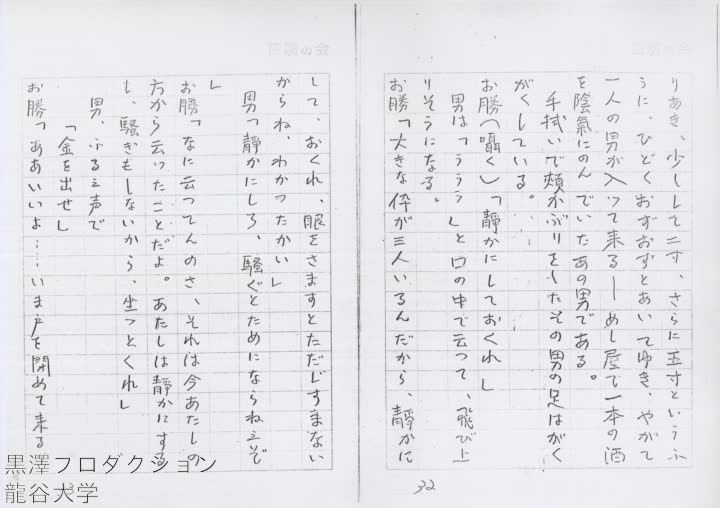 りあき、少しして二寸、さらに五寸というふ
うに、ひどくおずおずとあいてゆき、やがて
一人の男が入って来る――めし屋で一本の酒
を陰氣にのんでいたあの男である。
手拭いで頬かぶりをしたその男の足はがく
がくしている。
お勝（囁く）「静かにしておくれ」
男は「ううう」と口の中で云って、飛び上
りそうになる。
お勝「大きな伜が三人いるんだから、静かに
32
して、おくれ、眼をさますとただじすまない
からね、わかったかい」
男「静かにしろ、騒ぐとためにならねえぞ
」
お勝「なに云ってんのさ、それは今あたしの
方から云ったことだよ。あたしは静かにする
し、騒ぎもしないから、坐っとくれ」
男、ふるえ声で
「金を出せ」
お勝「ああいいよ……いま戸を閉めて来る
黒澤プロダクション
龍谷大学